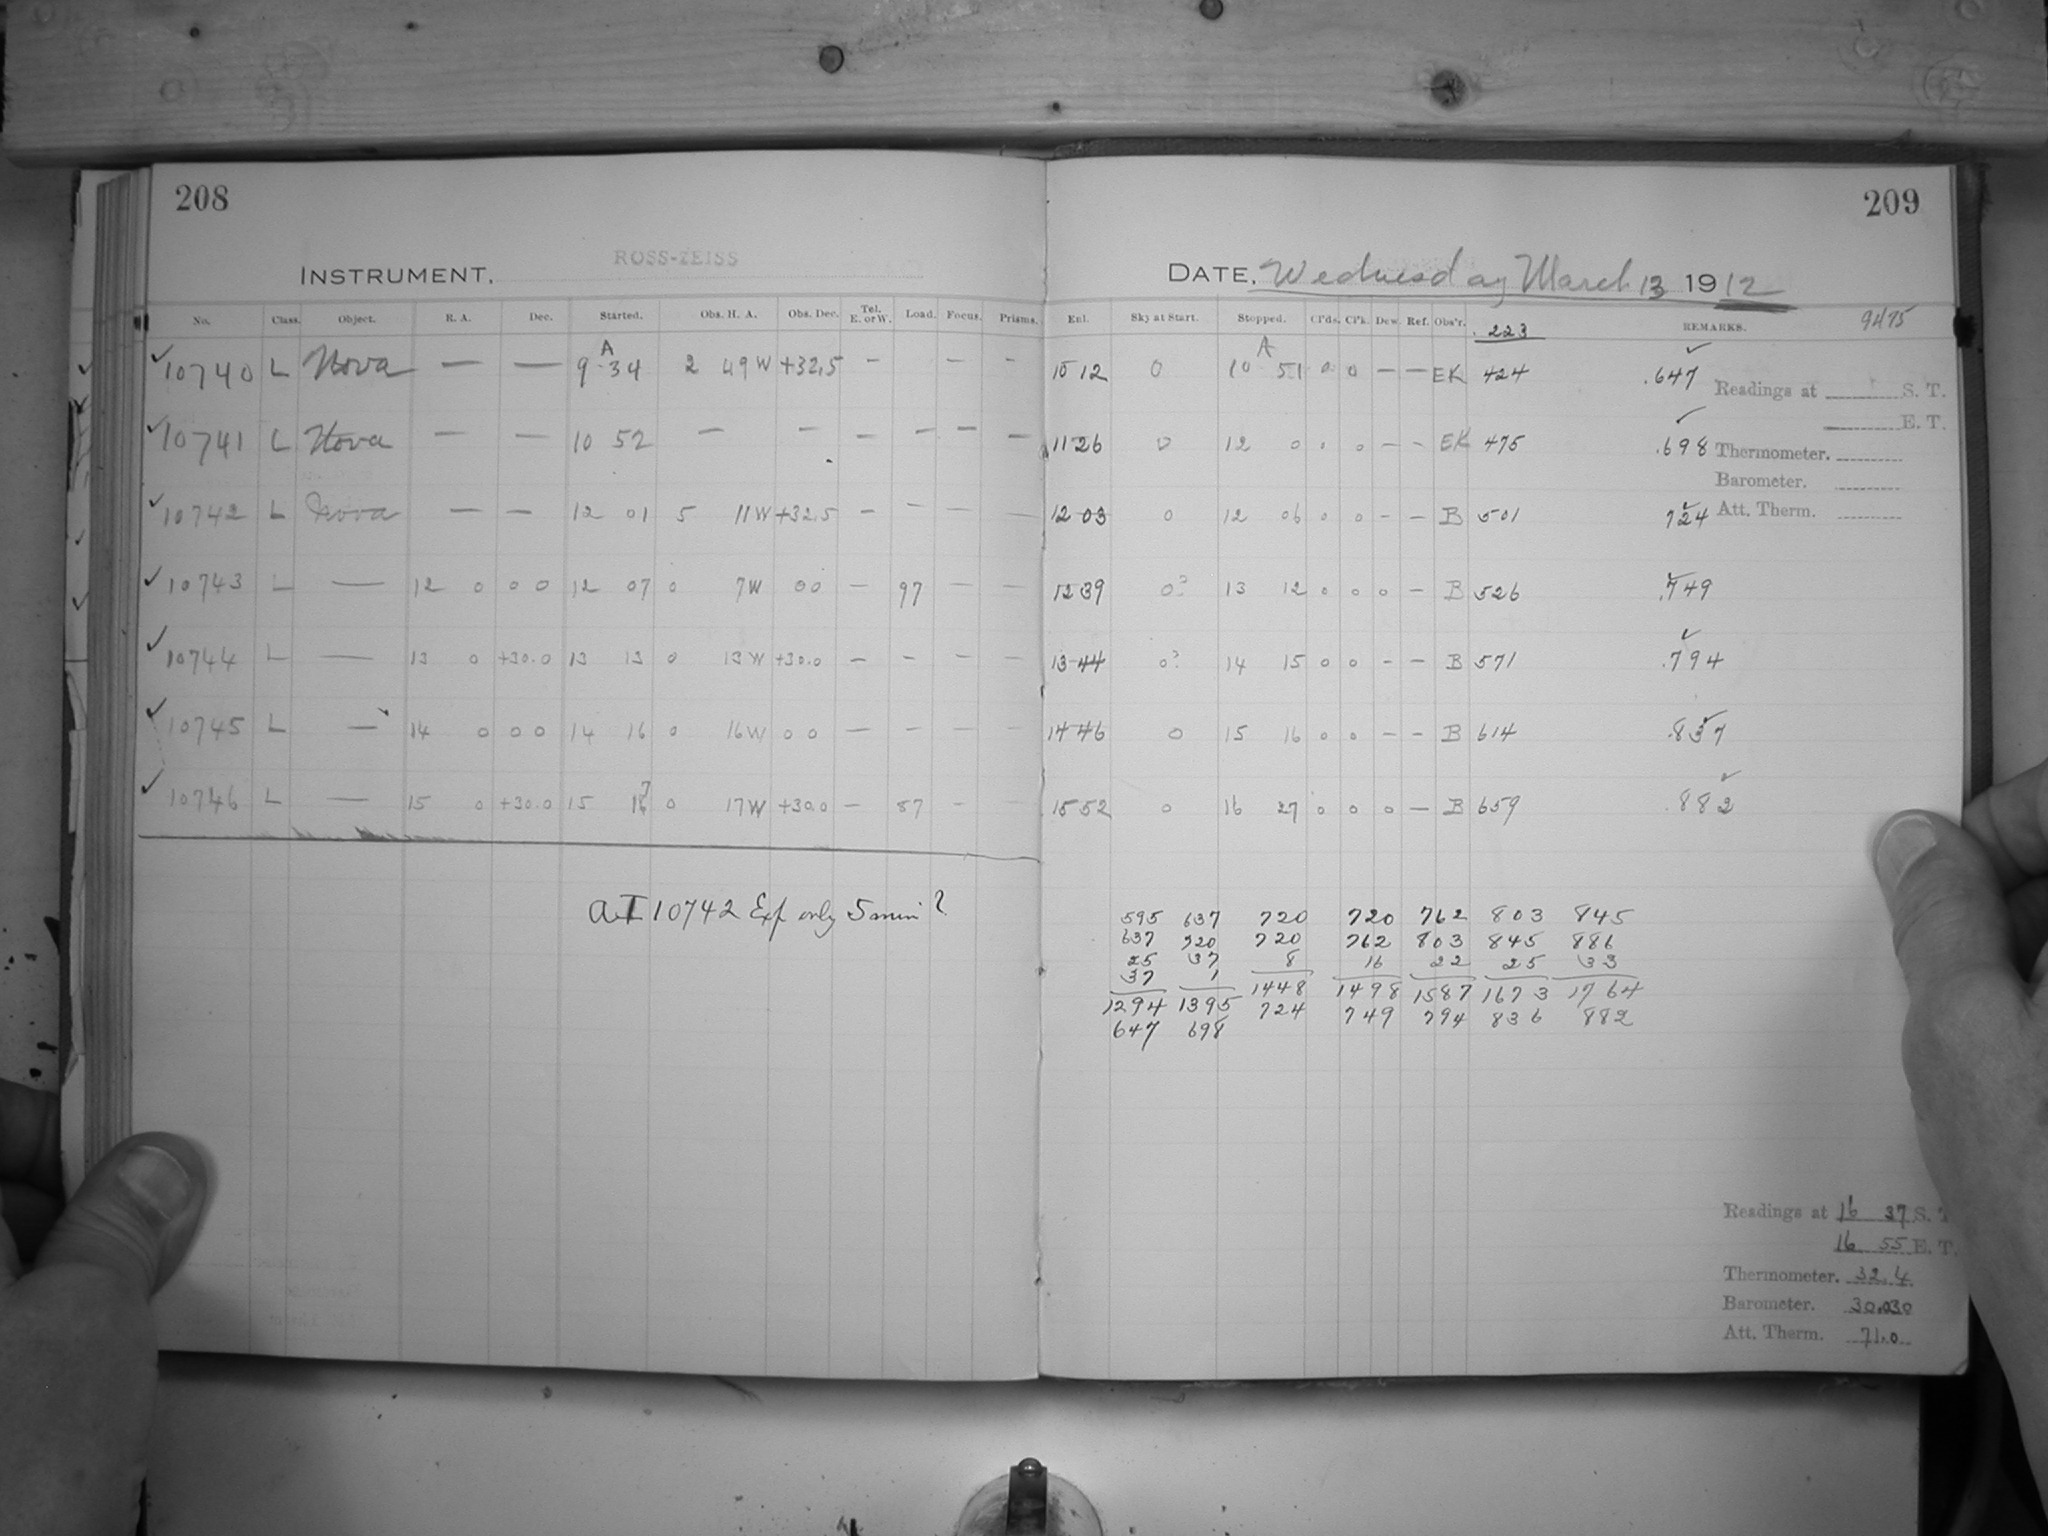 208
209
ROSS-ZEISS
INSTRUMENT.
DATE. Wednesday March 13 1912
No. Class. Object. R. A. Dec. Started. Obs. H. A. Obs. Dec. Tel. E. or W. Load. Focus. Prisms. Enl. Sky at Start. Stopped. Cl'ds. Cl'k. Dew. Ref. Obs'r. 223 REMARKS. 9475
A A
✓ 10740 L Nova — — 9 34 2 49 W +32.5 — — — 10 12 0 10 51 0 0 — — EK 424 .647 ✓
Readings at S. T.
E. T.
✓ 10741 L Nova — — 10 52 — — — — — — 11 26 0 12 0 0 0 — — EK 475 .698 ✓
Thermometer.
Barometer.
✓ 10742 L Nova — — 12 01 5 11 W +32.5 — — — — 12 03 0 12 06 0 0 — — B 501 724 ✓
Att. Therm.
✓ 10743 L — 12 0 0 0 12 07 0 7 W 0 0 — 97 — — 12 39 0? 13 12 0 0 0 — B 526 .749 ✓
✓ 10744 L — 13 0 +30.0 13 13 0 13 W +30.0 — — — — 13 44 0? 14 15 0 0 — — B 571 .794 ✓
✓ 10745 L — 14 0 0 0 14 16 0 16 W 0 0 — — — — 14 46 0 15 16 0 0 — — B 614 .837 ✓
✓ 10746 L — 15 0 +30.0 15 17 0 17 W +30.0 — 87 — — 15 52 0 16 27 0 0 0 — B 659 .882 ✓
10742 Exp only 5 min ?
595 637 720 720 762 803 845
637 720 720 762 803 845 886
25 37 8 16 22 25 33
37 1
1294 1395 1448 1498 1587 1673 1764
647 698 724 749 794 836 882
Readings at 16 37 S. T
16 55 E. T.
Thermometer. 32.4
Barometer. 30.030
Att. Therm. 71.0